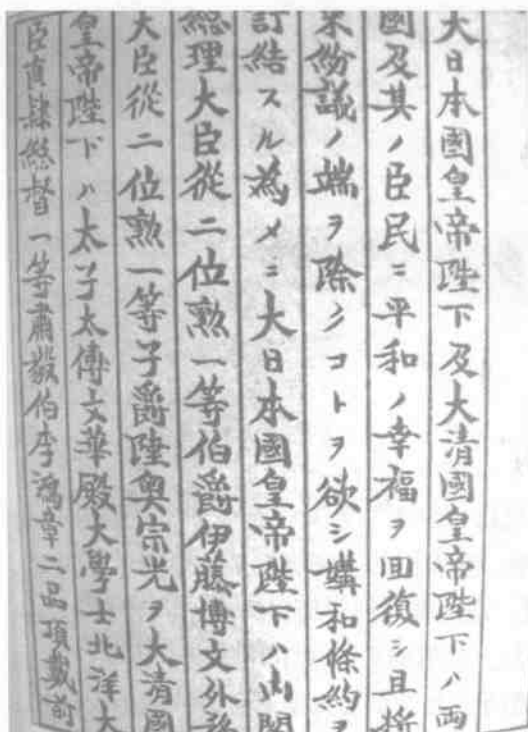 大日本國皇帝陛下及大清國皇帝陛下ハ兩
國及其ノ臣民ニ平和ノ幸福ヲ回復シ且將
來紛議ノ端ヲ除クコトヲ欲シ媾和條約ヲ
訂結スル為メニ大日本國皇帝陛下ハ內閣
總理大臣從二位勲一等伯爵伊藤博文外務
大臣從二位勲一等子爵陸奥宗光ヲ大清國
皇帝陛下ハ太子太傅文華殿大學士北洋大
臣直隷總督一等肅毅伯李鴻章二品頂戴前